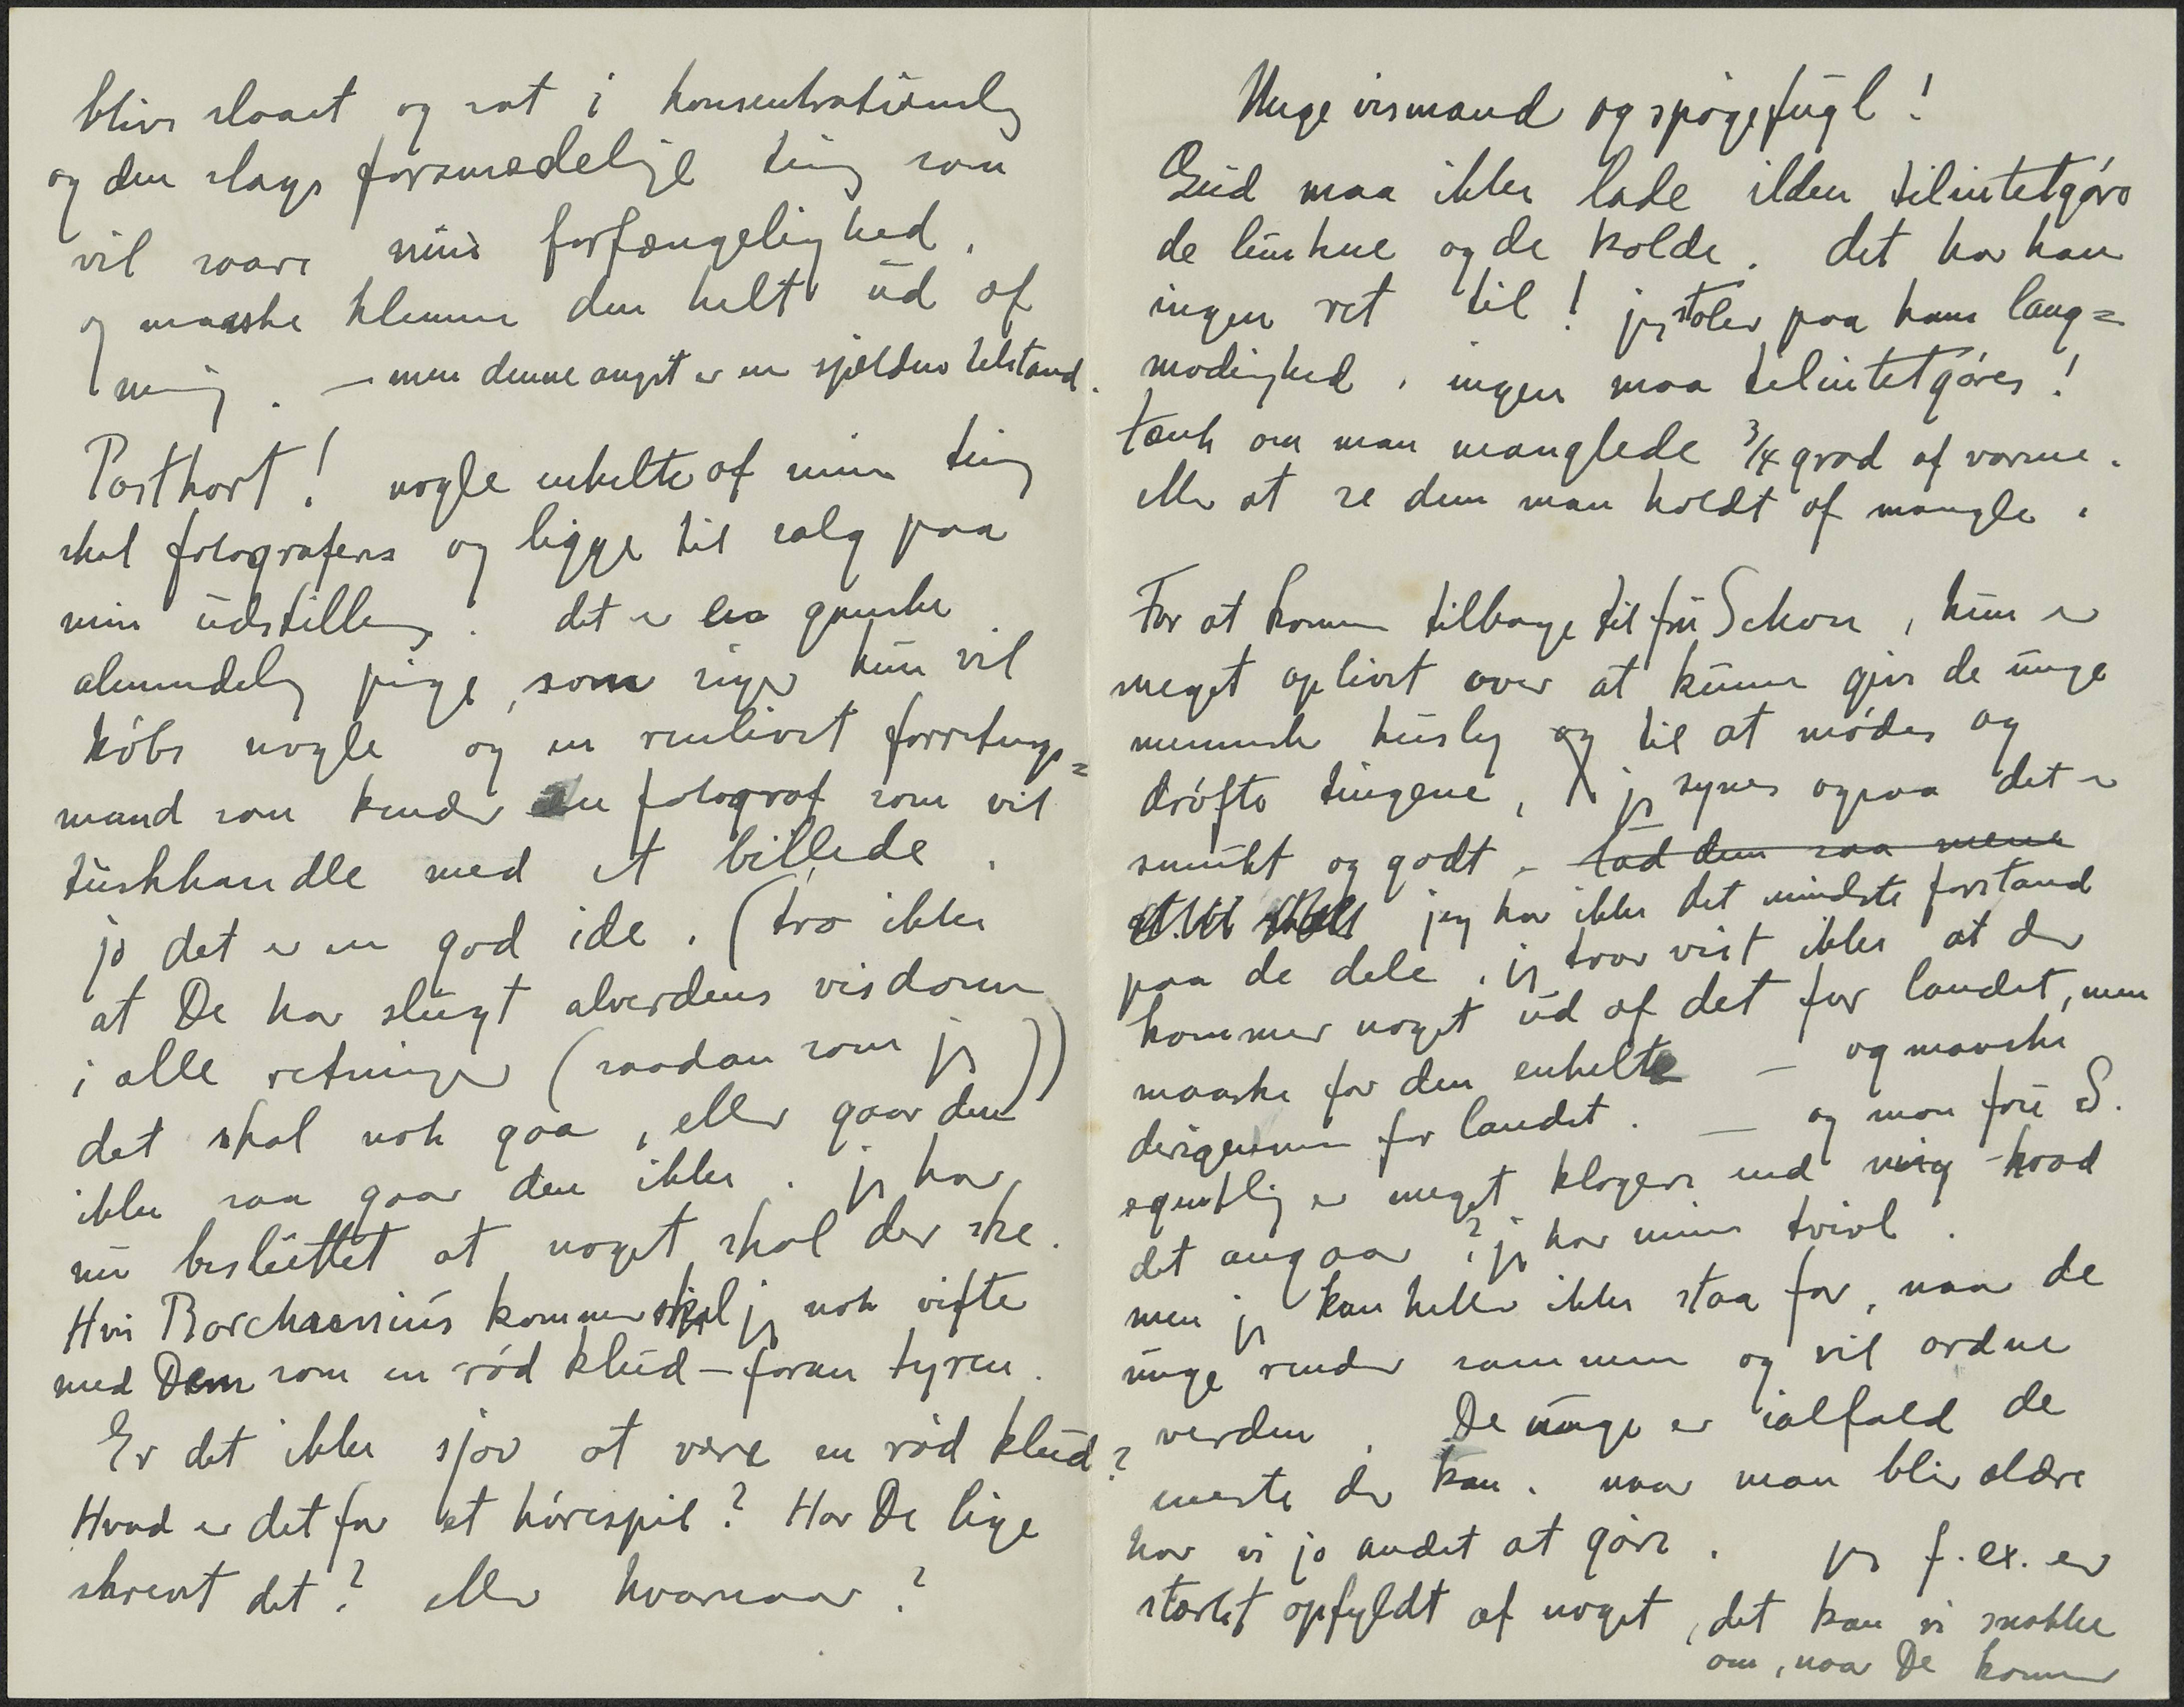 blive slaaet og sat i konsentrationslej
og den slags forsmædelige ting som
vil saare min forfængelighed.
og maaske klemme den helt ud af
mig. — men denne angst er en sjælden tilstand.
Postkort! nogle enkelte af mine ting
skal fotograferes og ligge til salg paa
min udstilling. det er en ganske
almindelig pige, som siger hun vil
købe nogle og en renlivet forretnings=
mand som kender en fotograf som vil
tuskhandle med et billede.
jo det er en god ide. (tro ikke
at De har slugt alverdens visdom
i alle retninger (saadan som jeg))
det skal nok gaa, eller gaar den
ikke saa gaar den ikke. jeg har
nu besluttet at noget skal der ske.
Hvis Borchsenius kommer skal jeg nok vifte
med Dem som en rød klud — foran tyren.
Er det ikke sjov at være en rød klud?
Hvad er det for et hørespil? Har De lige
skrevet det? eller hvornaar?
Unge vismand og spøgefugl!
Gud maa ikke lade ilden tilintetgøre
de lunkne og de kolde. det har han
ingen ret til! jeg stoler paa hans lang=
modighed. ingen maa tilintetgøres!
tænk om man manglede 3/4 grad af varme.
eller at se dem man holdt af mangle.
For at komme tilbage til fru Schou, hun er
meget oplivet over at kunne give de unge
mennesker husly og til at mødes og
drøfte tingene, jeg synes ogsaa det er
smukt og godt - lad dem saa mene
jeg har ikke det mindste forstand
paa de dele. jeg tror vist ikke at der
kommer noget ud af det for landet, men
maaske for den enkelte — og maaske
derigennem for landet. — og mon fru S.
egentlig er meget klogere end mig hvad
det angaar? jeg har mine tvivl.
men jeg kan heller ikke staa for, naar de
unge render sammen og vil ordne
verden. De unge er ialfald de
eneste der kan. naar man blir ældre
har vi jo andet at gøre. jeg f. ex. er
stærkt opfyldt af noget, det kan vi snakke
om, naar De kommer